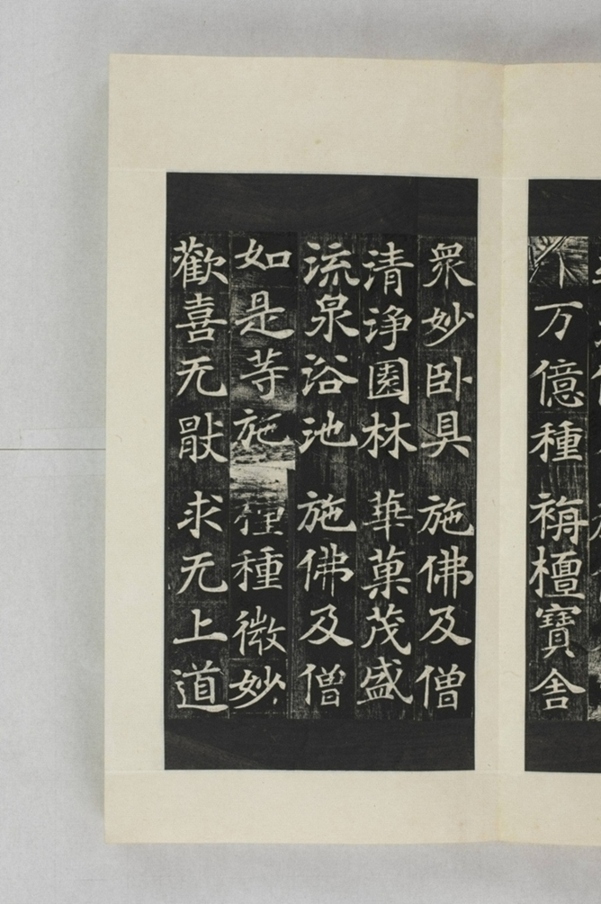 万億種 栴檀寶舍
衆妙卧具 施佛及僧
清淨園林 華菓茂盛
流泉浴池 施佛及僧
如是等施 種種微妙
歡喜无猒 求无上道